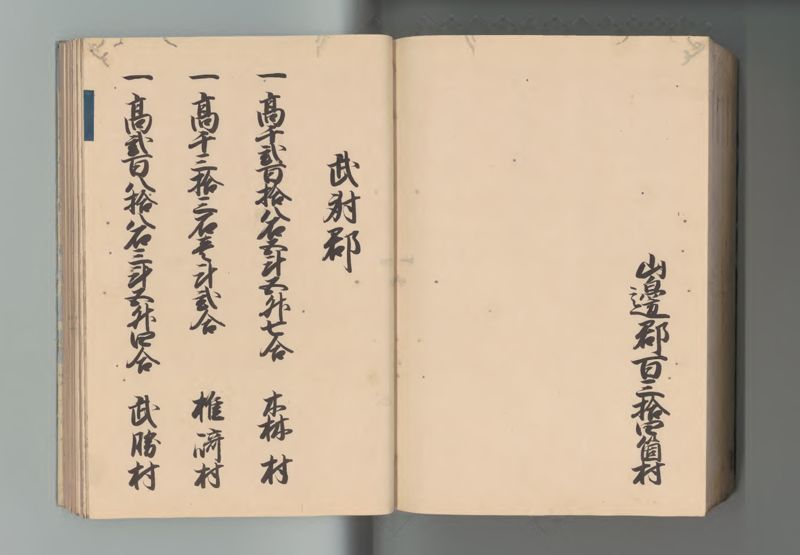 山邊郡百三拾四箇村
武射郡
一高千貳百拾八石壱斗五升七合 木林村
一高千三拾三石壱斗貳合 椎崎村
一高貳百八拾八石三斗五升四合 武勝村